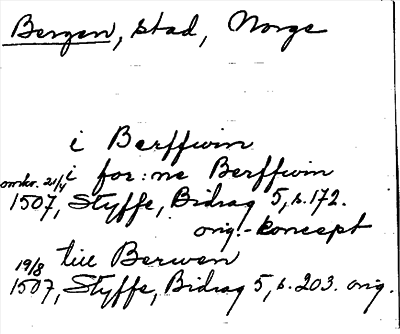 Bergen, stad, Norge
i Berffwin
i for:ne Berffwin
omkr. 21/4
1507, Styffe, Bidrag 5, s. 172.
orig.-koncept
19/8 till Berwen
1507, Styffe, Bidrag 5, s. 203. orig.